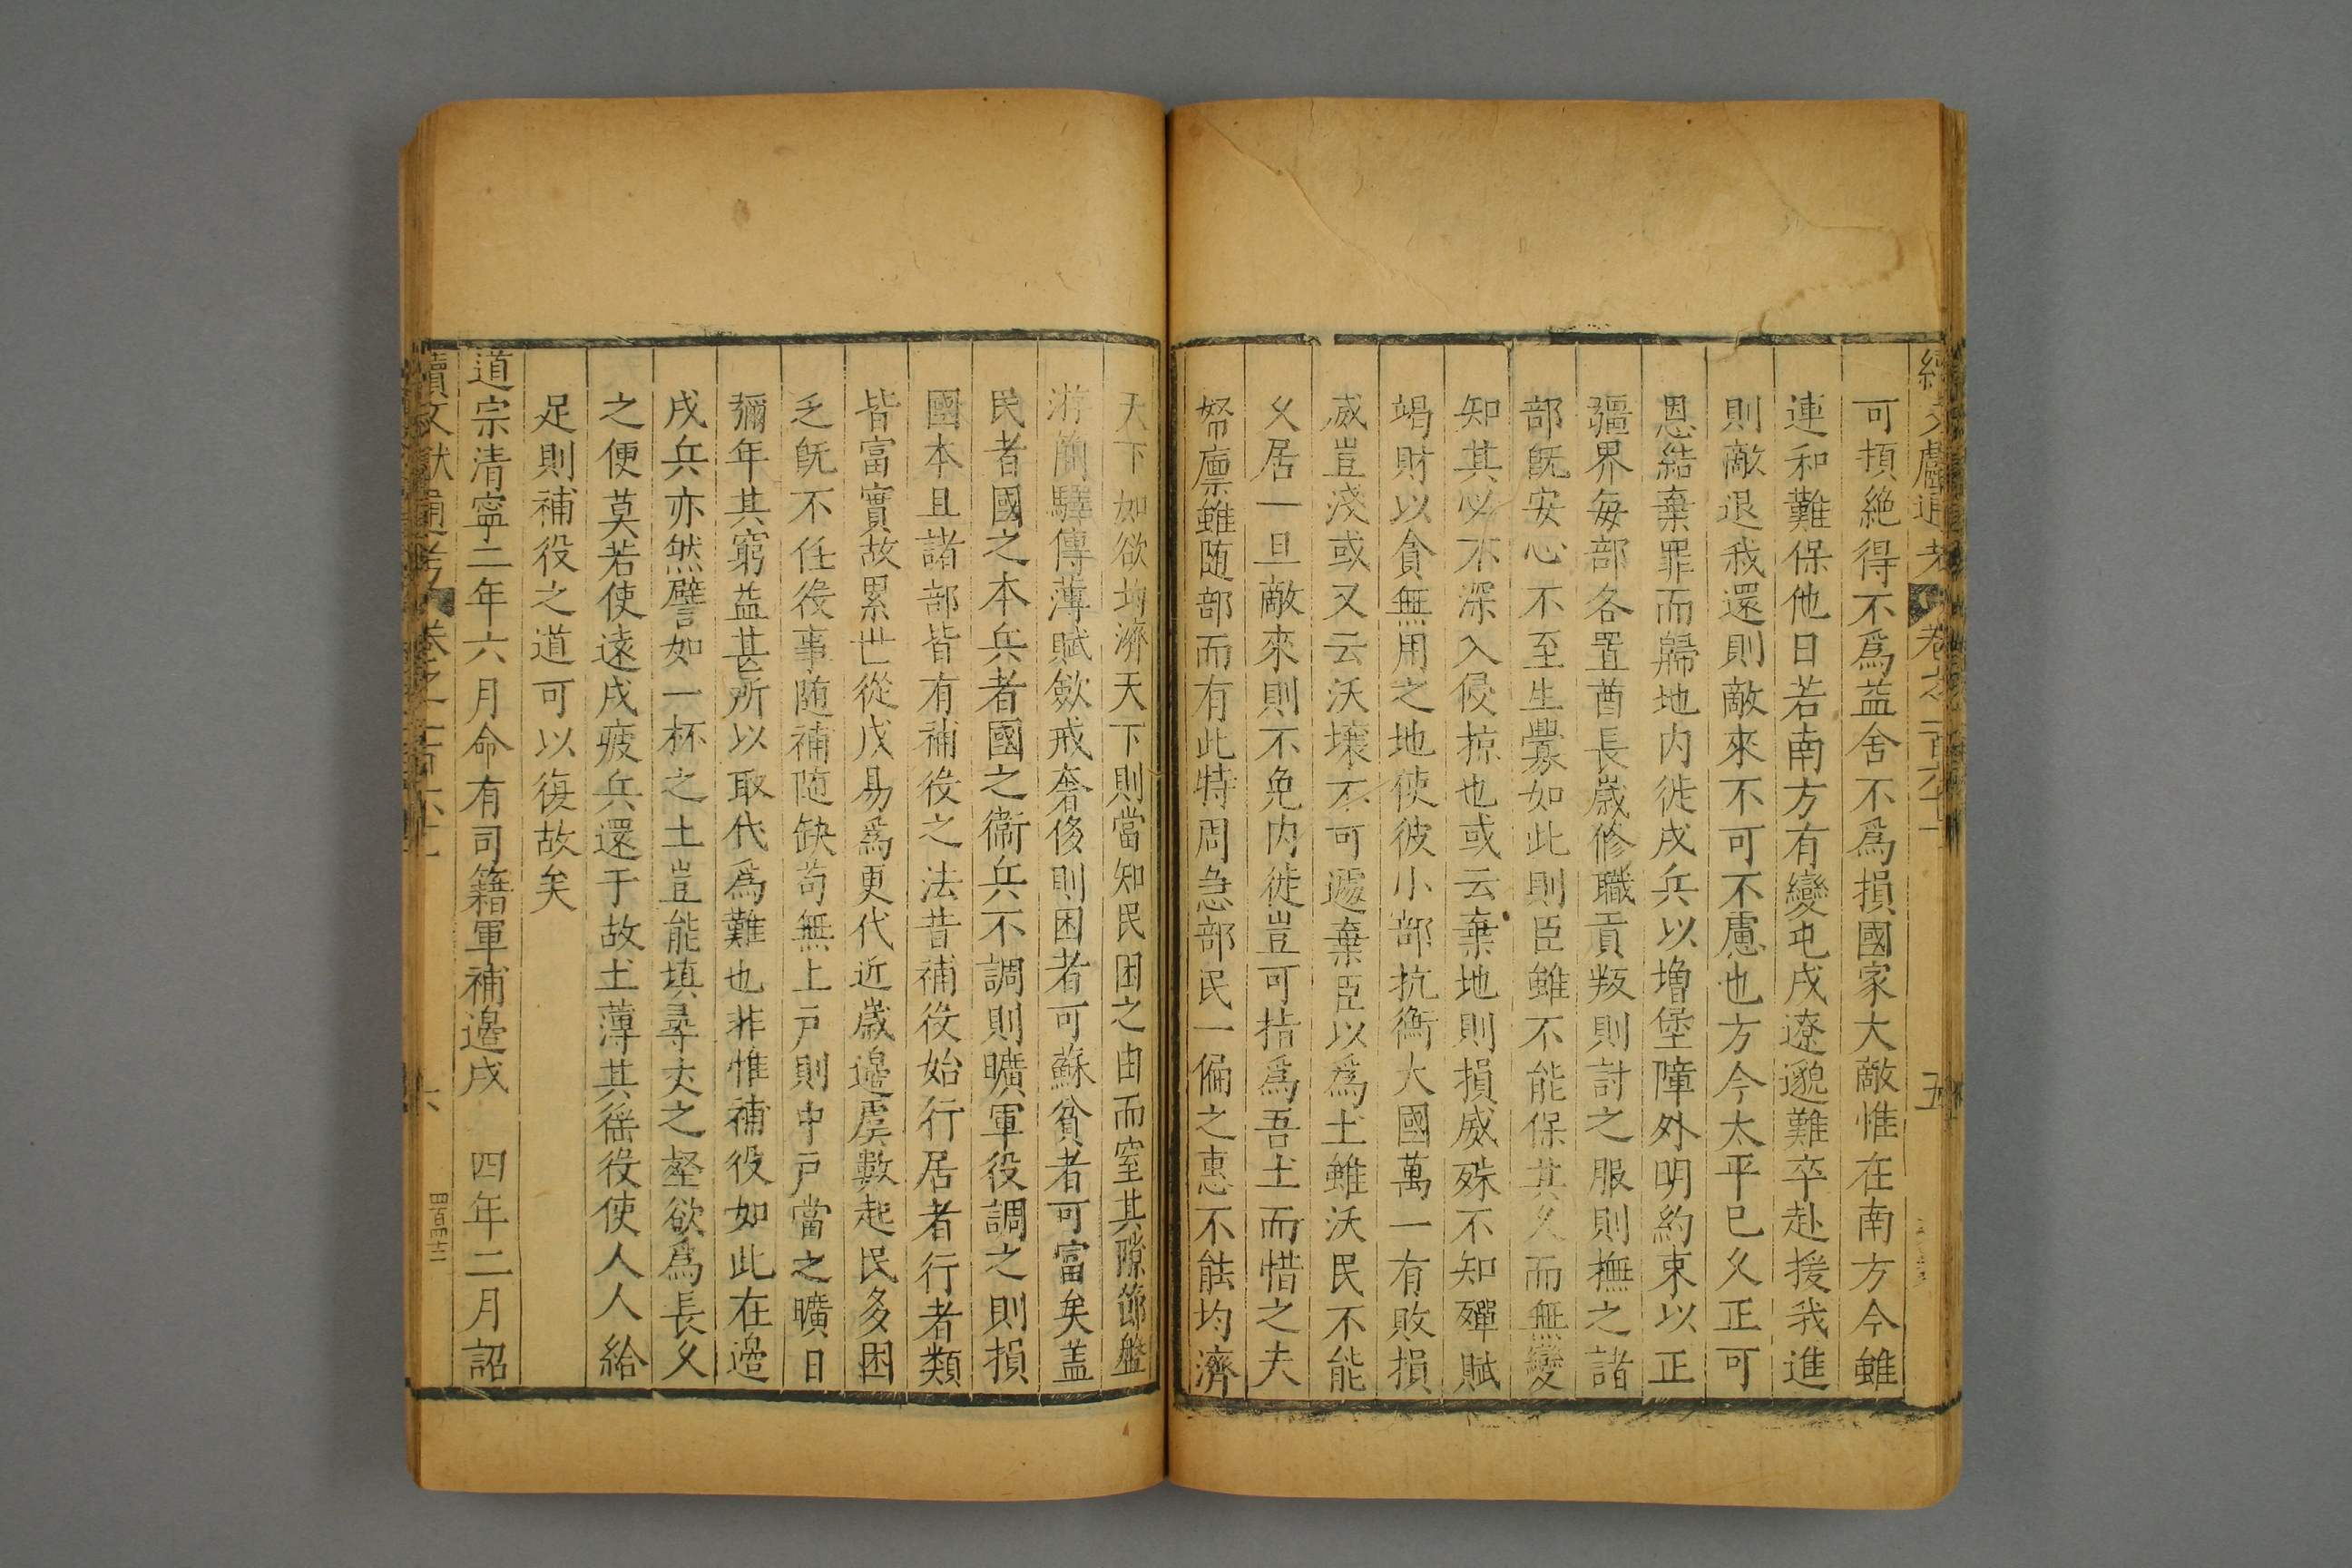 續文獻通考 卷之一百六十一 五
可損絶得不爲益舍不爲損國家大敵惟在南方今雖
連和難保他日若南方有變屯戍遼邈難卒赴援我進
則敵退我還則敵來不可不慮也方今太平已乆正可
恩結棄罪而歸地内徙戍兵以増堡障外明約束以正
疆界每部各置酋長歲修職貢叛則討之服則撫之諸
部既安必不至生釁如此則臣雖不能保其乆而無變
知其必不深入侵掠也或云棄地則損威殊不知殫賦
竭財以貪無用之地使彼小部抗衡大國萬一有敗損
威豈淺或又云沃壤不可遽棄臣以爲土雖沃民不能
乆居一旦敵來則不免内徙豈可指爲吾土而惜之夫
帑廪雖随部而有此特周急部民一偏之惠不能均濟
天下如欲均濟天下則當知民困之由而窒其隙節盤
游簡驛傳薄賦歛戒奢侈則困者可蘇貧者可富矣盖
民者國之本兵者國之衞兵不調則曠軍役調之則損
國本且諸部皆有補役之法昔補役始行居者行者類
皆富實故累世從戍易爲更代近歲邉虞數起民多困
乏既不任役事随補随缺苟無上戸則中戸當之曠日
彌年其窮益甚所以取代爲難也非惟補役如此在邉
戍兵亦然譬如一杯之土豈能填尋丈之壑欲爲長乆
之便莫若使遠戍疲兵還于故土薄其徭役使人人給
足則補役之道可以復故矣
道宗清寧二年六月命有司籍軍補邉戍 四年二月詔
續文獻通考 卷之一百六十一 六